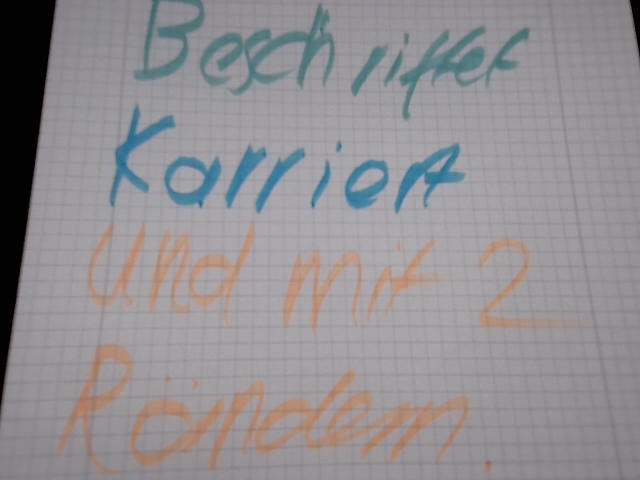 Beschriftet
Karriert
Und mit 2
Rändern.